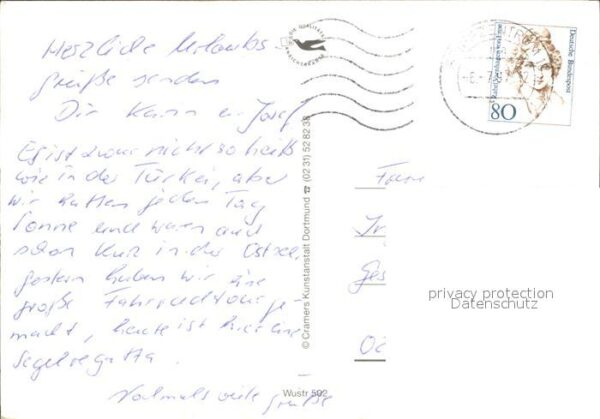 Herzliche Urlaubs
grüße senden
Dir Karin u. Josef
Es ist zwar nicht so heiß
wie in der Türkei, aber
wir hatten jeden Tag
Sonne und waren auch
schon kurz in der Ostsee,
gestern haben wir eine
große Fahrradtour ge-
macht, heute ist hier eine
Segelregatta.
Nochmals viele Grüße
© Cramers Kunstanstalt Dortmund ☎ (02 31) 52 82 38
Wustr 502
Deutsche Bundespost
80
privacy protection
Datenschutz